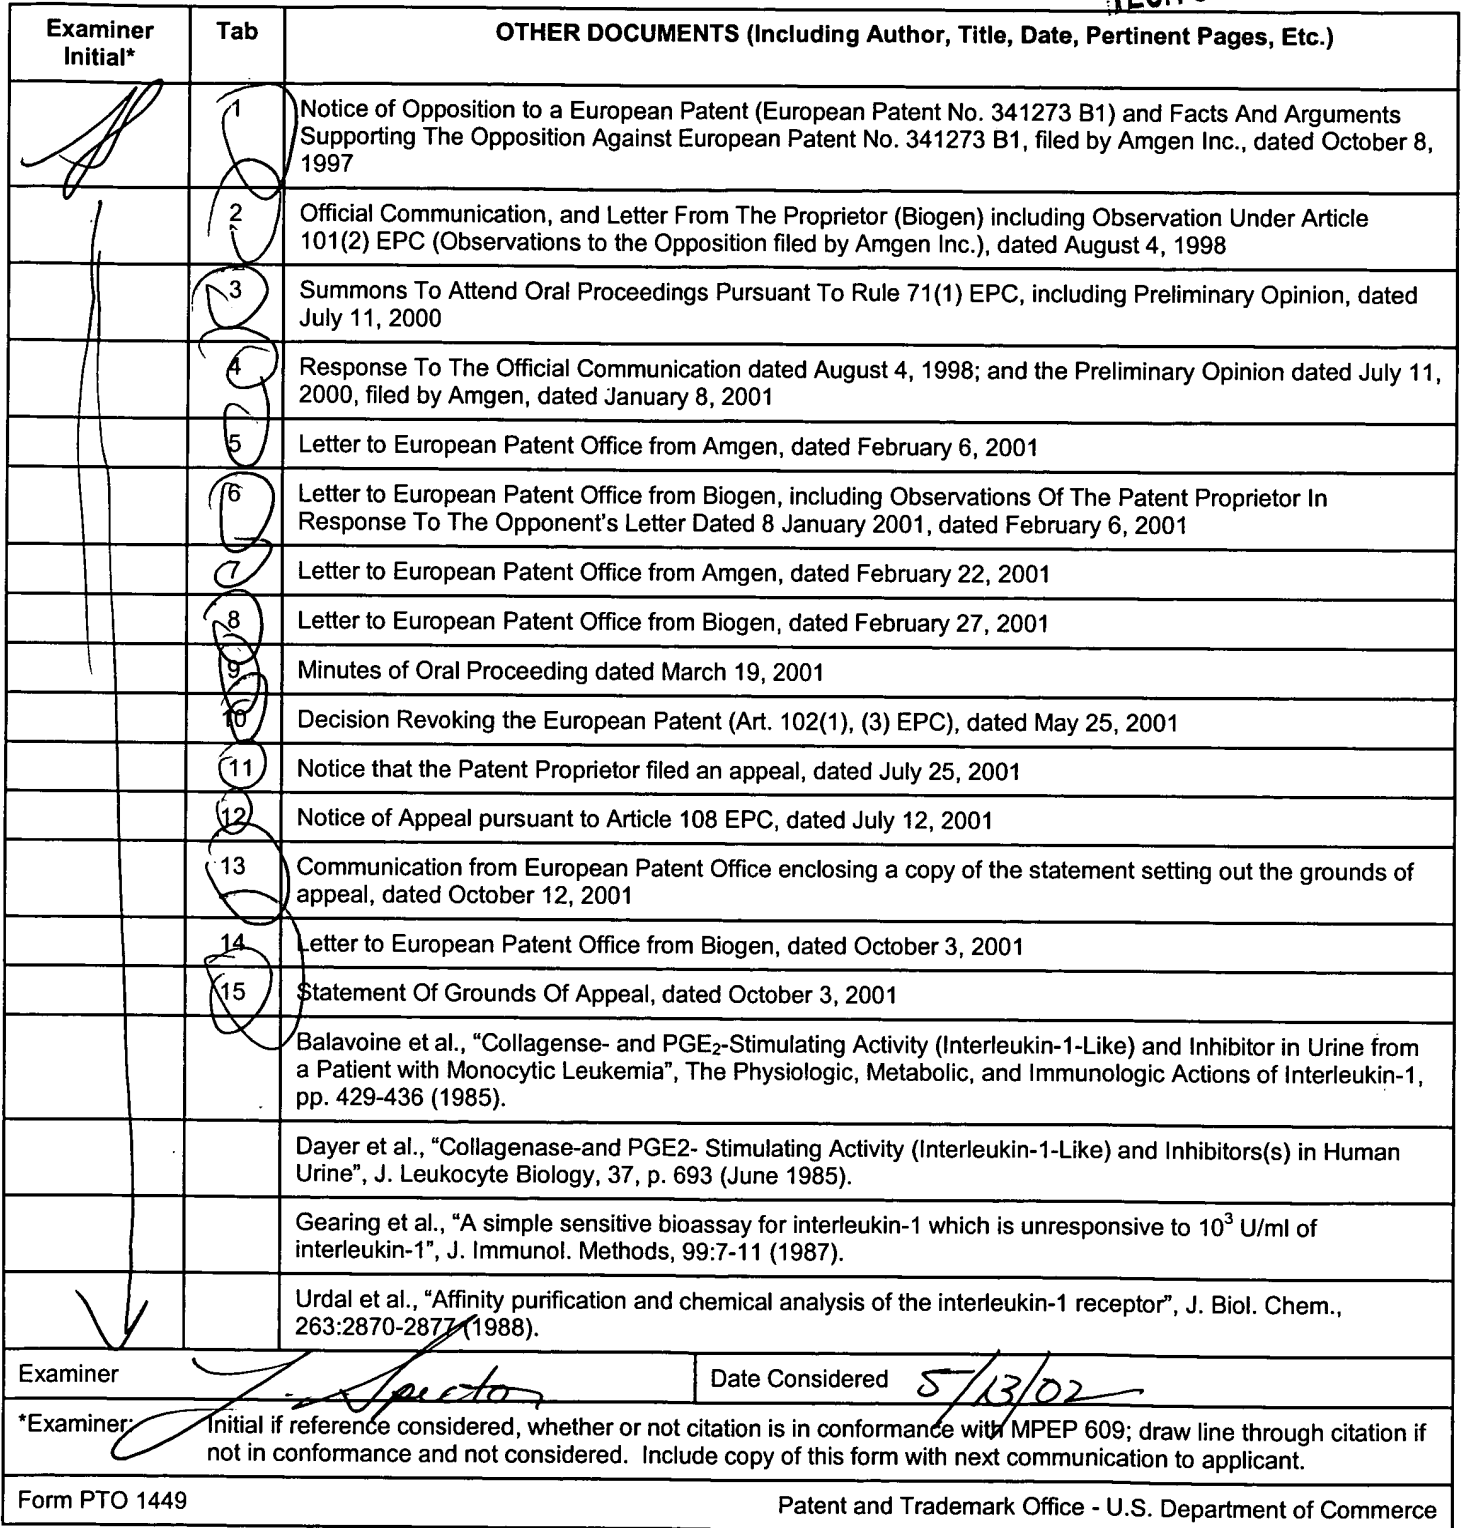 Examiner Initial* Tab OTHER DOCUMENTS (Including Author, Title, Date, Pertinent Pages, Etc.)
1 Notice of Opposition to a European Patent (European Patent No. 341273 B1) and Facts And Arguments
Supporting The Opposition Against European Patent No. 341273 B1, filed by Amgen Inc., dated October 8,
1997
2 Official Communication, and Letter From The Proprietor (Biogen) including Observation Under Article
101(2) EPC (Observations to the Opposition filed by Amgen Inc.), dated August 4, 1998
3 Summons To Attend Oral Proceedings Pursuant To Rule 71(1) EPC, including Preliminary Opinion, dated
July 11, 2000
4 Response To The Official Communication dated August 4, 1998; and the Preliminary Opinion dated July 11,
2000, filed by Amgen, dated January 8, 2001
5 Letter to European Patent Office from Amgen, dated February 6, 2001
6 Letter to European Patent Office from Biogen, including Observations Of The Patent Proprietor In
Response To The Opponent's Letter Dated 8 January 2001, dated February 6, 2001
7 Letter to European Patent Office from Amgen, dated February 22, 2001
8 Letter to European Patent Office from Biogen, dated February 27, 2001
9 Minutes of Oral Proceeding dated March 19, 2001
10 Decision Revoking the European Patent (Art. 102(1), (3) EPC), dated May 25, 2001
11 Notice that the Patent Proprietor filed an appeal, dated July 25, 2001
12 Notice of Appeal pursuant to Article 108 EPC, dated July 12, 2001
13 Communication from European Patent Office enclosing a copy of the statement setting out the grounds of
appeal, dated October 12, 2001
14 Letter to European Patent Office from Biogen, dated October 3, 2001
15 Statement Of Grounds Of Appeal, dated October 3, 2001
Balavoine et al., “Collagense- and PGE₂-Stimulating Activity (Interleukin-1-Like) and Inhibitor in Urine from
a Patient with Monocytic Leukemia”, The Physiologic, Metabolic, and Immunologic Actions of Interleukin-1,
pp. 429-436 (1985).
Dayer et al., “Collagenase-and PGE2- Stimulating Activity (Interleukin-1-Like) and Inhibitors(s) in Human
Urine”, J. Leukocyte Biology, 37, p. 693 (June 1985).
Gearing et al., “A simple sensitive bioassay for interleukin-1 which is unresponsive to 10³ U/ml of
interleukin-1”, J. Immunol. Methods, 99:7-11 (1987).
Urdal et al., “Affinity purification and chemical analysis of the interleukin-1 receptor”, J. Biol. Chem.,
263:2870-2877 (1988).
Examiner Spector Date Considered 5/13/02
*Examiner: Initial if reference considered, whether or not citation is in conformance with MPEP 609; draw line through citation if
not in conformance and not considered. Include copy of this form with next communication to applicant.
Form PTO 1449 Patent and Trademark Office - U.S. Department of Commerce